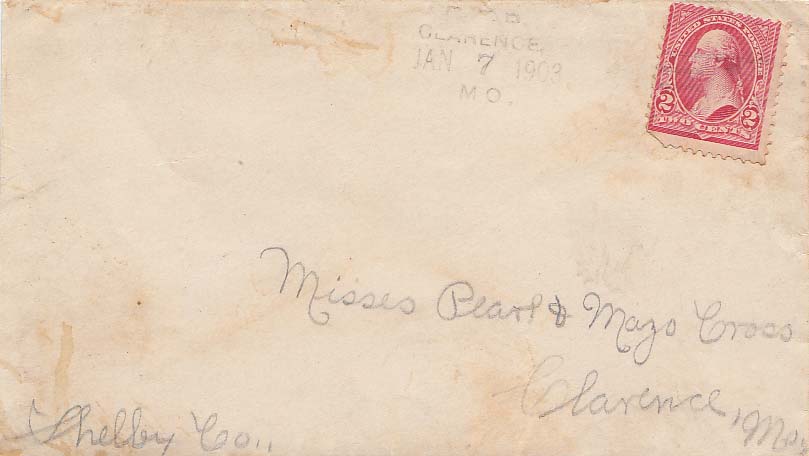 CLARENCE,
JAN 7 1903
MO.
UNITED STATES POSTAGE
2 2
TWO CENTS
Misses Pearl & Mayo Cross
Clarence, Mo,
Shelby Co.,